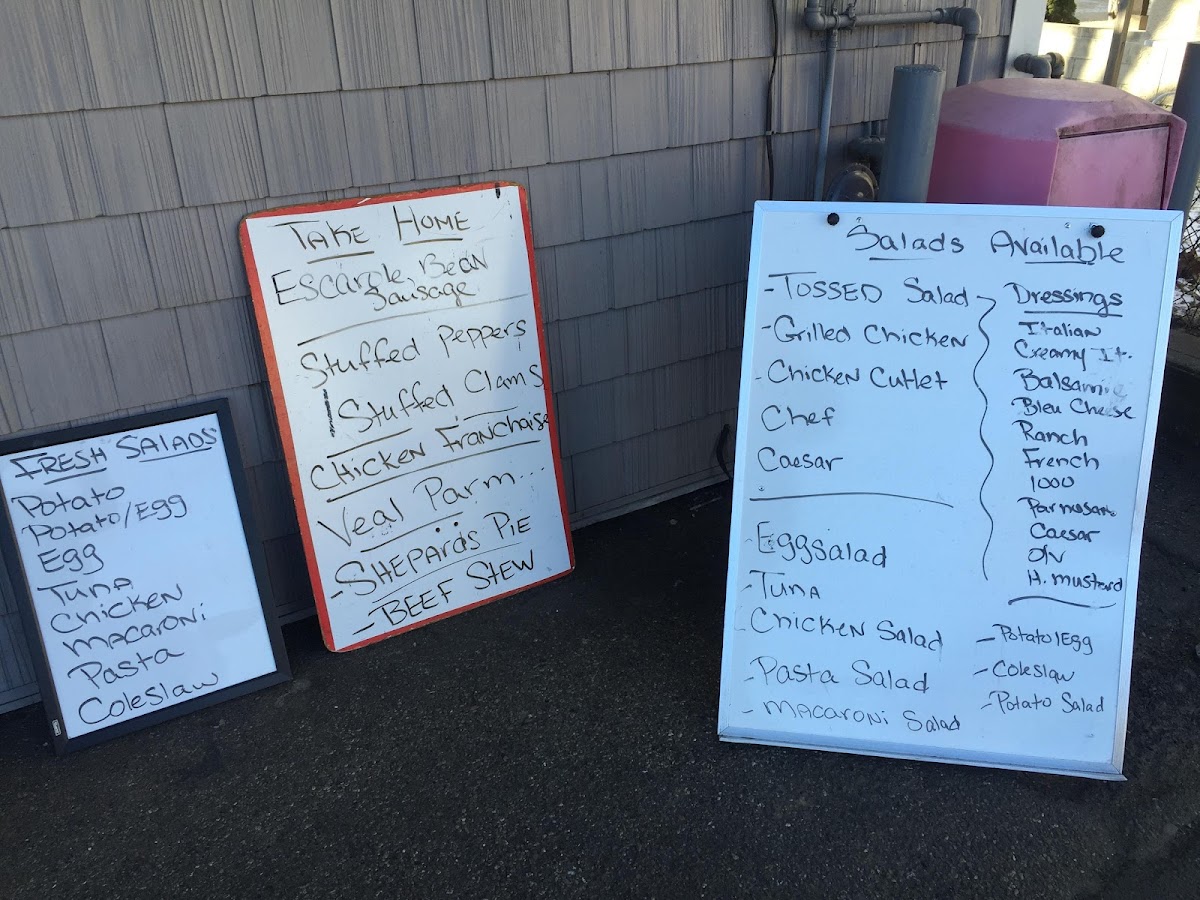 FRESH SALADS
Potato
Potato/Egg
Egg
Tuna
Chicken
Macaroni
Pasta
Coleslaw
TAKE HOME
Escarole, Bean
Sausage
Stuffed Peppers
Stuffed Clams
Chicken Franchaise
Veal Parm...
- Shepard's Pie
- Beef Stew
Salads Available
- TOSSED Salad
- Grilled Chicken
- Chicken Cutlet
Chef
Caesar
- Eggsalad
- Tuna
- Chicken Salad
- Pasta Salad
- Macaroni Salad
Dressings
Italian
Creamy It.
Balsamic
Bleu Cheese
Ranch
French
1000
Parmesan
Caesar
O/V
H. Mustard
- Potato/Egg
- Coleslaw
- Potato Salad